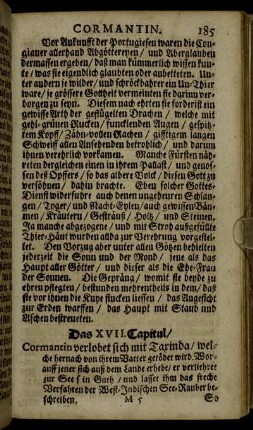 CORMANTIN. 185
Vor Ankunfft der Portugiesen waren die Con-
gianer allerhand Abgöttereyen / und Aberglauben
dermassen ergeben / daß man kümmerlich wissen kun-
te / was sie eigendlich glaubten oder anbetteten. Un-
ter andern je wilder / und schröckbahrer ein Un-Thier
ware / je grössere Gottheit vermeinten sie darinn ver-
borgen zu seyn. Diesem nach ehrten sie forderist ein
gewisse Arth der geflügelten Drachen / welche mit
gehl-grünen Rucken / funcklenden Augen / gespitz-
ten Kopff / Zähn-vollen Rachen / gifftigem langen
Schweiff allen Ansehenden betrohlich / und darum
ihnen verehrlich vorkamen. Manche Fürsten näh-
reten dergleichen einen in ihrem Palast / und genos-
sen deß Opffers / so das albere Volck / diesen Gott zu
versöhnen / dahin brachte. Eben solcher Gottes-
Dienst widerfuhr auch denen ungeheuren Schlan-
gen / Tyger / und Nacht-Eylen / auch gewissen Bäu-
men / Kräutern / Gesträuß / Holtz / und Steinen.
Ja manche abgezogene / und mit Stroh außgefüllte
Thier-Häut wurden alda zur Verehrung vorgestellt.
Den Vorzug aber unter allen Götzen behielten
jederzeit die Sonn und der Mond / jene als das
Haupt aller Götter / und dieser als die Ehe-Frau
der Sonnen. Die Gepräng / womit sie beyde zu
ehren pflegten / bestunden mehrentheils in dem / daß
sie vor ihnen die Knye sincken liessen / das Angesicht
zur Erden warffen / das Haupt mit Staub und
Aschen bestreueten.
Das XVII. Capitul /
Cormantin verlobet sich mit Taxinda / wel-
che hernach von ihrem Vatter getödet wird. Wor-
auff jener sich auß dem Lande erhebt / er verliehret
zur See sein Guth / und lasset ihm das freche
Verfahren der West-Indischen See-Rauber be-
schreiben.
M 5 So